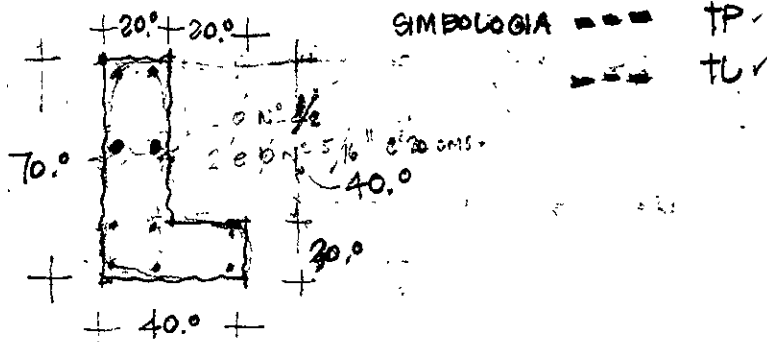 20.° 20.° SIMBOLOGIA TP
TL
Ø Nº 1/2
70.° 2 e Ø Nº 5/16" @ 20 cms.
40.°
30.°
40.°